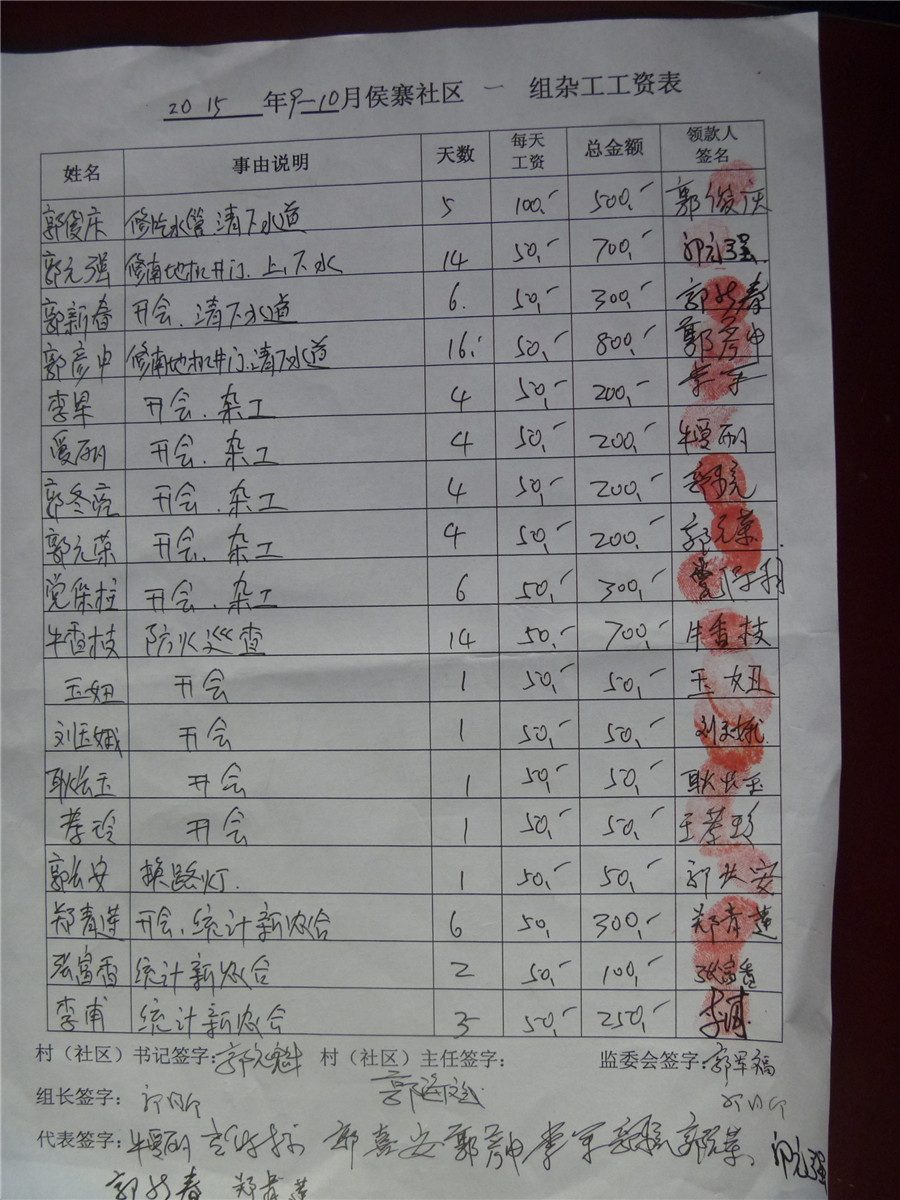 2015年9-10月侯寨社区 一 组杂工工资表
姓名 事由说明 天数 每天工资 总金额 领款人签名
郭俊庆 修吃水管 清下水道 5 100.- 500.- 郭俊庆
郭元强 修南地机井门.上.下水 14 50.- 700.- 郭元强
郭新春 开会.清下水道 6. 50.- 300.- 郭新春
郭彦申 修南地机井门.清下水道 16. 50.- 800.- 郭彦申
李军 开会.杂工 4 50.- 200.- 李军
爱丽 开会.杂工 4 50.- 200.- 牛爱丽
郭冬亮 开会.杂工 4 50.- 200.-
郭元荣 开会.杂工 4 50.- 200.- 郭元荣
党保柱 开会.杂工 6 50.- 300.-
牛香枝 防火巡查 14 50.- 700.- 牛香枝
玉妞 开会 1 50.- 50.- 玉妞
刘玉娥 开会 1 50.- 50.- 刘玉娥
耿长玉 开会 1 50.- 50.- 耿长玉
开会 1 50.- 50.-
郭长安 换路灯. 1 50.- 50.- 郭长安
郑青莲 开会.统计新农合 6 50. 300.- 郑青莲
张富香 统计新农合 2 50.- 100.- 张富香
李甫 统计新农合 5 50.- 250.- 李甫
村（社区）书记签字：郭元魁 村（社区）主任签字： 监委会签字：郭军福
组长签字：
代表签字：牛爱丽 郭喜安 郭彦申 李军 郭元荣 郭元强
郭新春 郑青莲